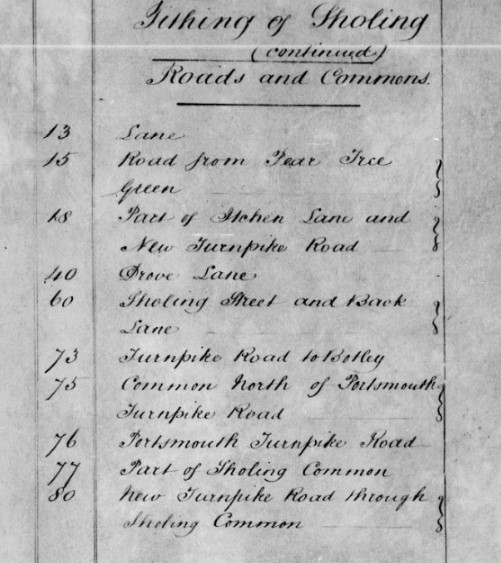 Tithing of Sholing
(continued)
Roads and Commons.
13 Lane
15 Road from Pear Tree
Green
18 Part of Itchen Lane and
New Turnpike Road
40 Drove Lane
60 Sholing Street and Back
Lane
73 Turnpike Road to Botley
75 Common North of Portsmouth
Turnpike Road
76 Portsmouth Turnpike Road
77 Part of Sholing Common
80 New Turnpike Road through
Sholing Common